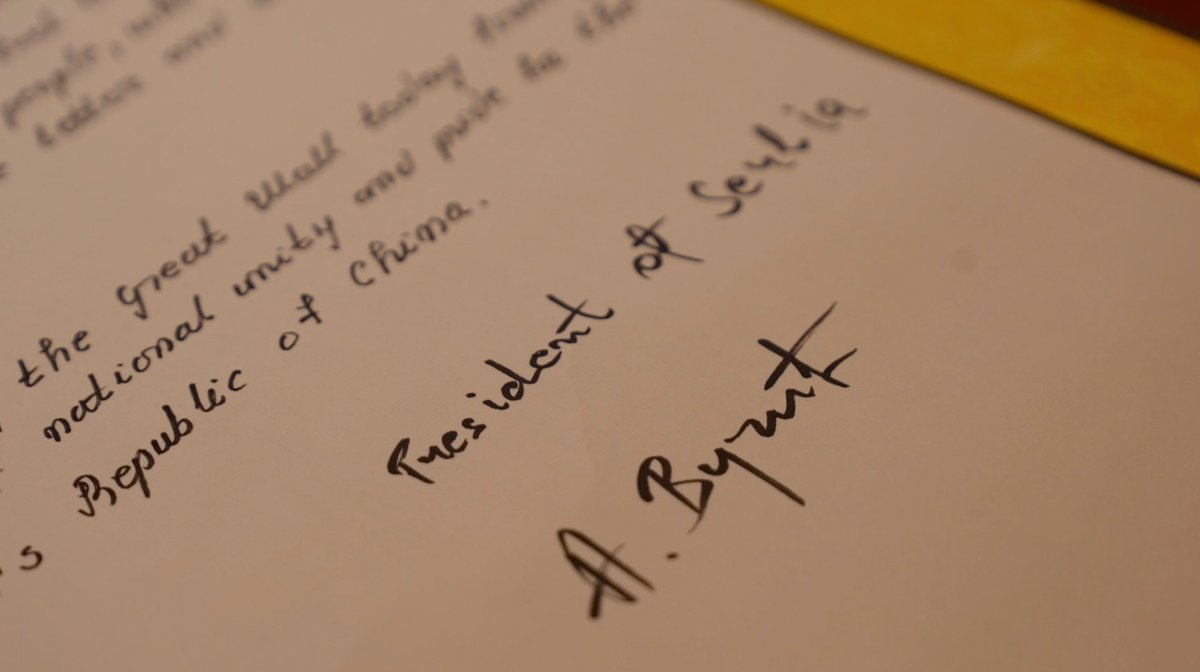 people,
the great Wall today
national unity and pride the
s Republic of China.
President of Serbia
А. Вучић